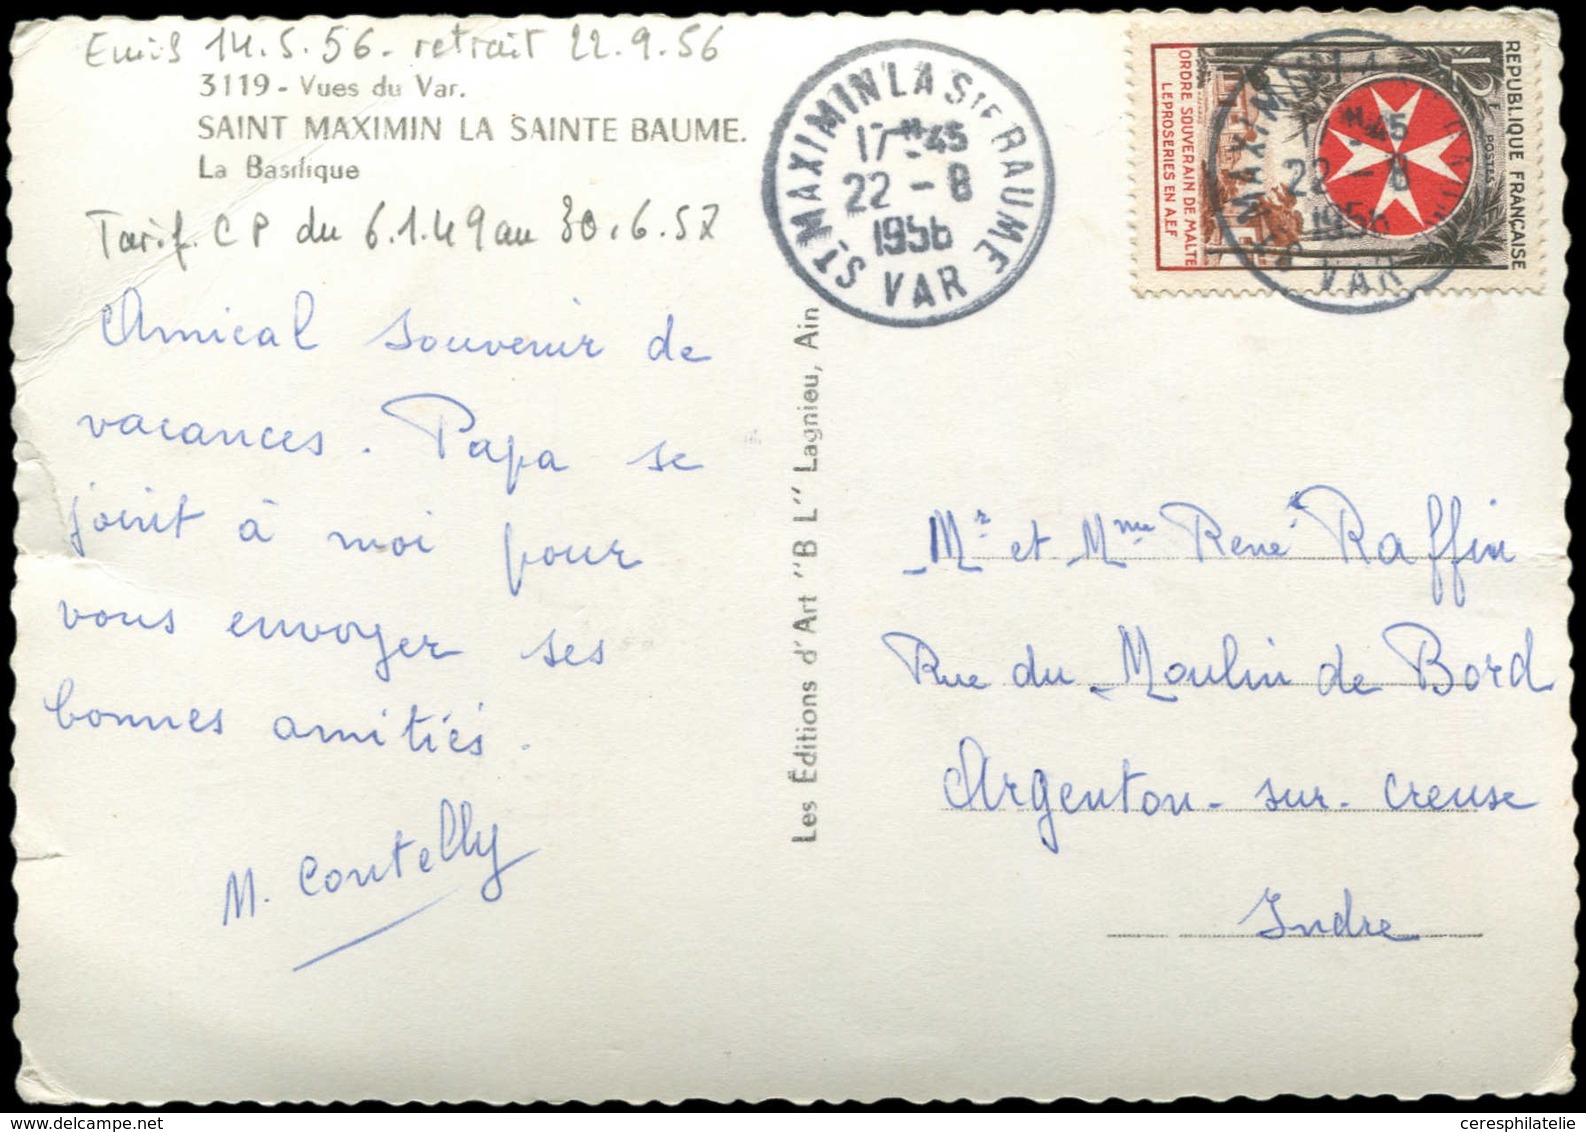 Emis 14.5.56 - retrait 22.9.56
3119 - Vues du Var.
SAINT MAXIMIN LA SAINTE BAUME.
La Basilique
Tarif. CP du 6.1.49 au 30.6.57
Amical souvenir de
vacances. Papa se
joint à moi pour
vous envoyer ses
bonnes amitiés.
M. Coutelly
Les Éditions d'Art "B L" Lagnieu, Ain
ST MAXIMIN LA Ste BAUME
17H45
22 - 8
1956
VAR
REPUBLIQUE FRANÇAISE
12F
POSTES
ORDRE SOUVERAIN DE MALTE
LEPROSERIES EN A.E.F
17H45
22 - 8
1956
VAR
Mr et Mme René Raffin
Rue du Moulin de Bord
Argenton-sur-Creuse
Indre
ceresphilatelie